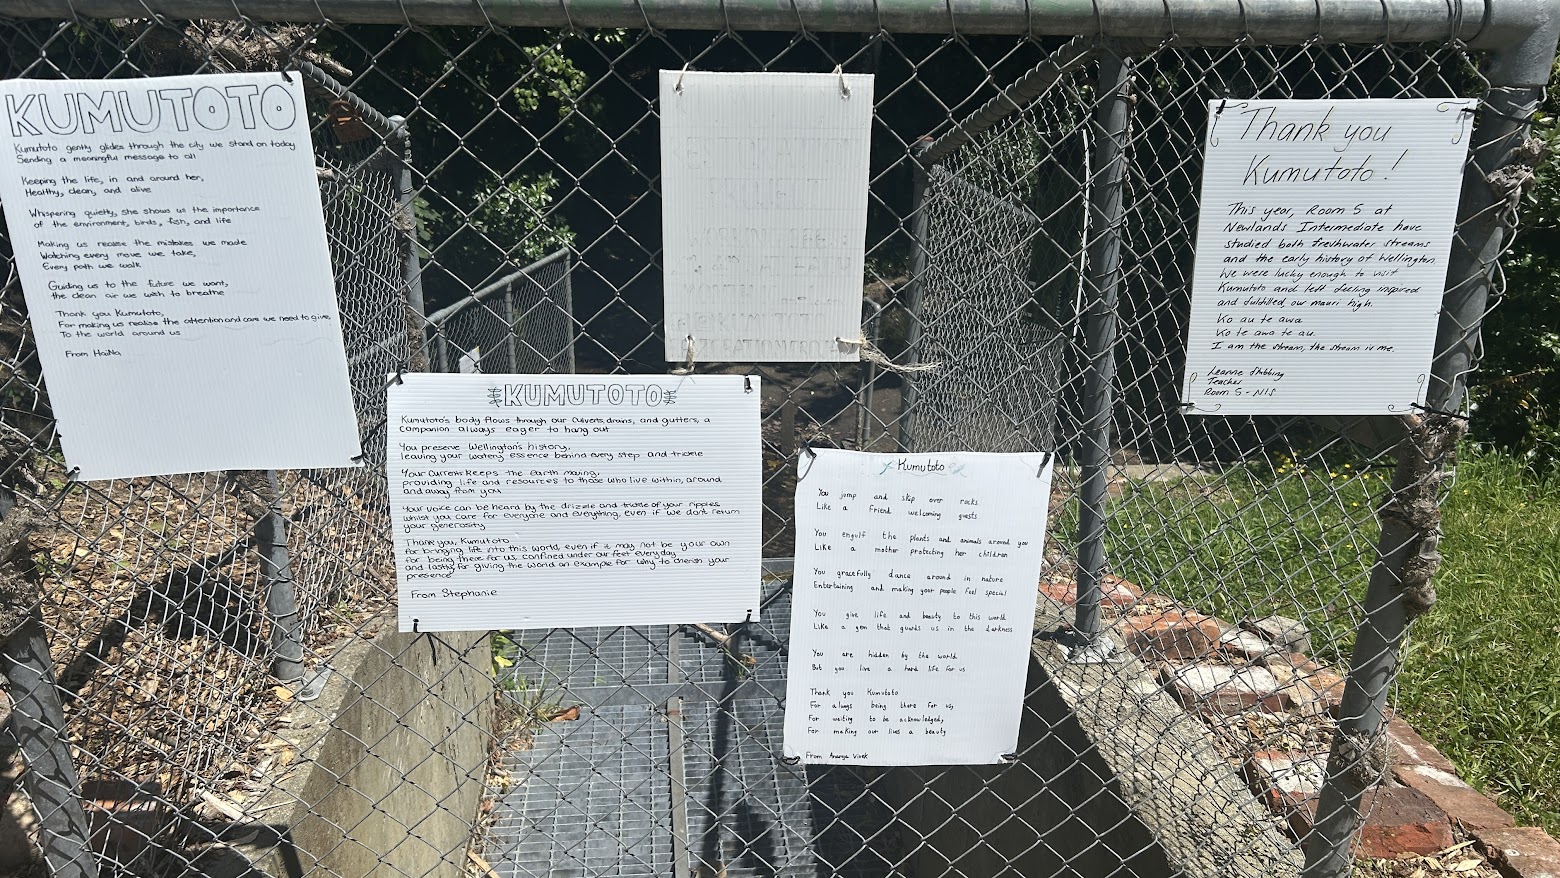 KUMUTOTO
Kumutoto gently glides through the city we stand on today
Sending a meaningful message to all
Keeping the life, in and around her,
Healthy, clean, and alive
Whispering quietly, she shows us the importance
of the environment, birds, fish, and life
Making us realise the mistakes we made
Watching every move we take,
Every path we walk
Guiding us to the future we want,
the clean air we wish to breathe
Thank you Kumutoto,
For making us realise the attention and care we need to give,
To the world around us
From
KUMUTOTO
Kumutoto's body flows through our culverts, drains, and gutters, a
companion always eager to hang out
You preserve Wellington's history,
leaving your watery essence behind every step and trickle
Your current keeps the earth moving,
providing life and resources to those who live within, around
and away from you
Your voice can be heard by the drizzle and trickle of your ripples
whilst you care for everyone and everything, even if we don't return
your generosity
Thank you, Kumutoto
for bringing life into this world, even if it may not be your own
for being there for us, confined under our feet everyday
and lastly, for giving the world an example for why to cherish your
presence
From Stephanie
Kumutoto
You jump and skip over rocks
Like a friend welcoming guests
You engulf the plants and animals around you
Like a mother protecting her children
You gracefully dance around in nature
Entertaining and making your people feel special
You give life and beauty to this world
Like a gem that guards us in the darkness
You are hidden by the world
But you live a hard life for us
Thank you Kumutoto
For always being there for us,
For waiting to be acknowledged,
For making our lives a beauty
From Ananya Vivek
Thank you
Kumutoto!
This year, Room 5 at
Newlands Intermediate have
studied both freshwater streams
and the early history of Wellington.
We were lucky enough to visit
Kumutoto and left feeling inspired
and fulfilled, our mauri high.
Ko au te awa
Ko te awa te au.
I am the stream, the stream is me.
Leanne
Teacher
Room 5 - NIS